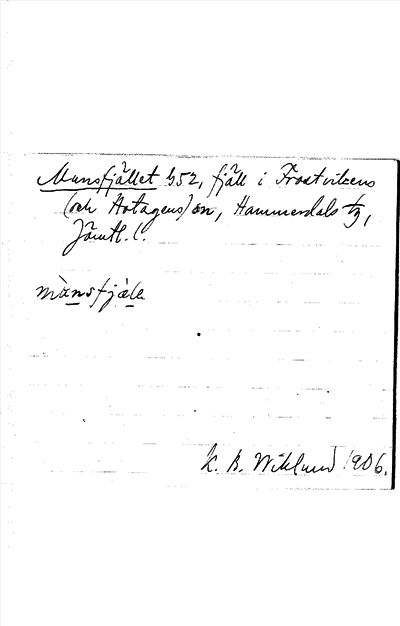 Munsfjället b52, fjäll i Frostvikens
(och Hotagens) sn, Hammerdals tg,
Jämtl. l.
mùnsfjæ̀lɛ
K. B. Wiklund 1906.